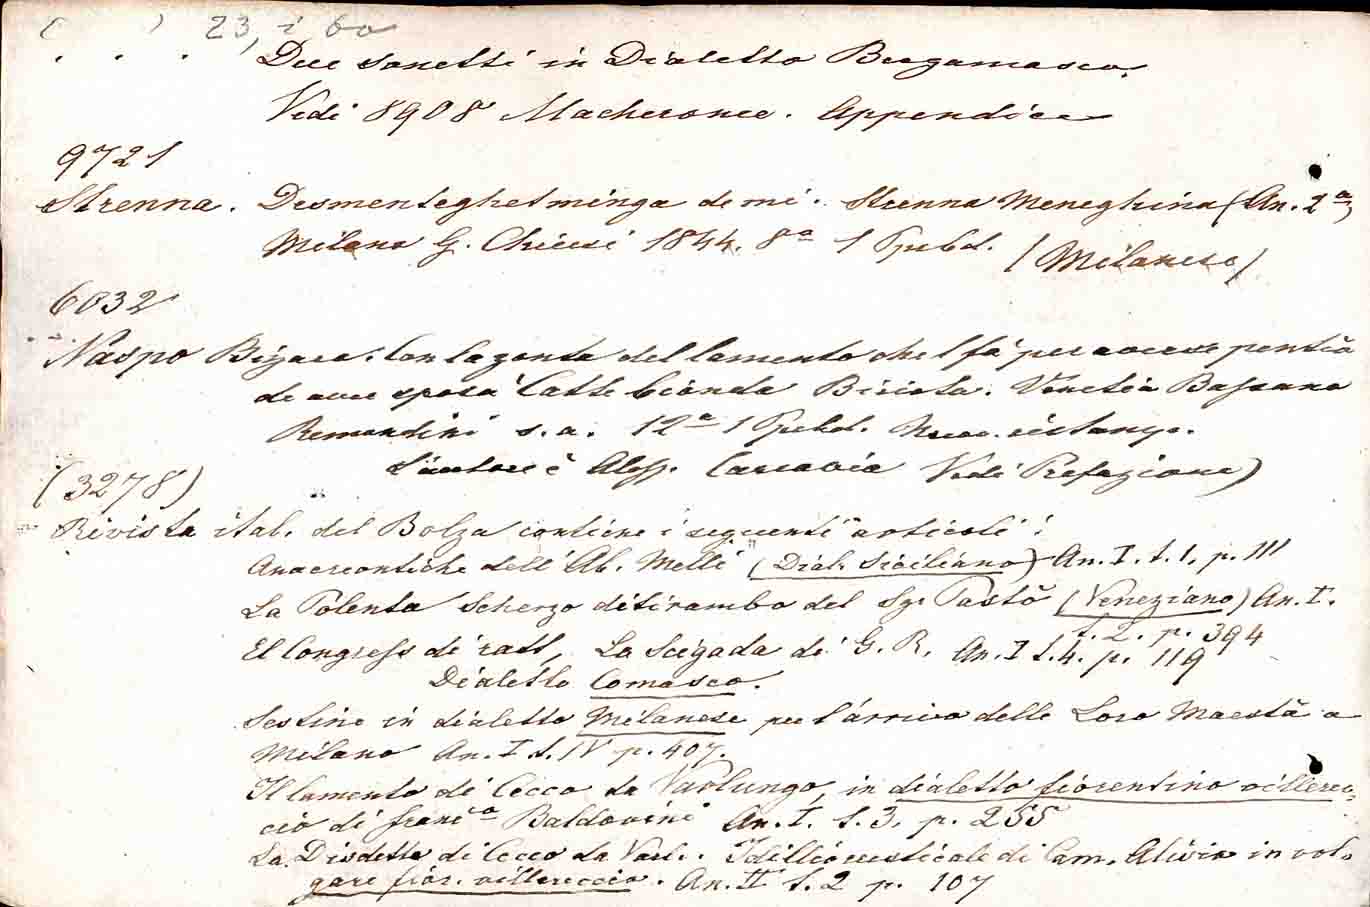 23, i 60
. . . Due sonetti in Dialetto Bergamasco.
Vedi 8908 Macheronee. Appendice
9721
Strenna. Desmenteghet minga de mi. Strenna Meneghina (An. 2a)
Milano G. Chiusi 1844. 8o 1 (Milanese)
6032
Naspo Bizaro. Con la zonta del lamento che l fà per averse pentio
de aver sposà Catte bionda Biriota. Venetia Bassano
Remondini s. a. 12o 1 ristamp.
L'autore è Aless. Caravia Vedi Prefazione)
(3278)
Rivista ital. del Bolza contiene i seguenti articoli:
Anacreontiche dell'Ab. Melli (Dial. Siciliano) An. I. t. 1. p. 111
La Polenta scherzo ditirambo del Sgr Pastò (Veneziano) An. I.
t. 2. p. 394
El Congress di ratt, La Scigada di G. R. An. I t. 4. p. 119
Dialetto Comasco.
Sestine in dialetto Milanese per l'arrivo delle Loro Maestà a
Milano An. I t. IV p. 407.
Il lamento di Cecco da Varlungo, in dialetto fiorentino villerec-
cio di Franco Baldovini An. I. t. 3. p. 255
La Disdetta di Cecco da Varl. Idillio rusticale di Cam. Alivia in vol-
gare fior. villereccio. An. II t. 2 p. 107